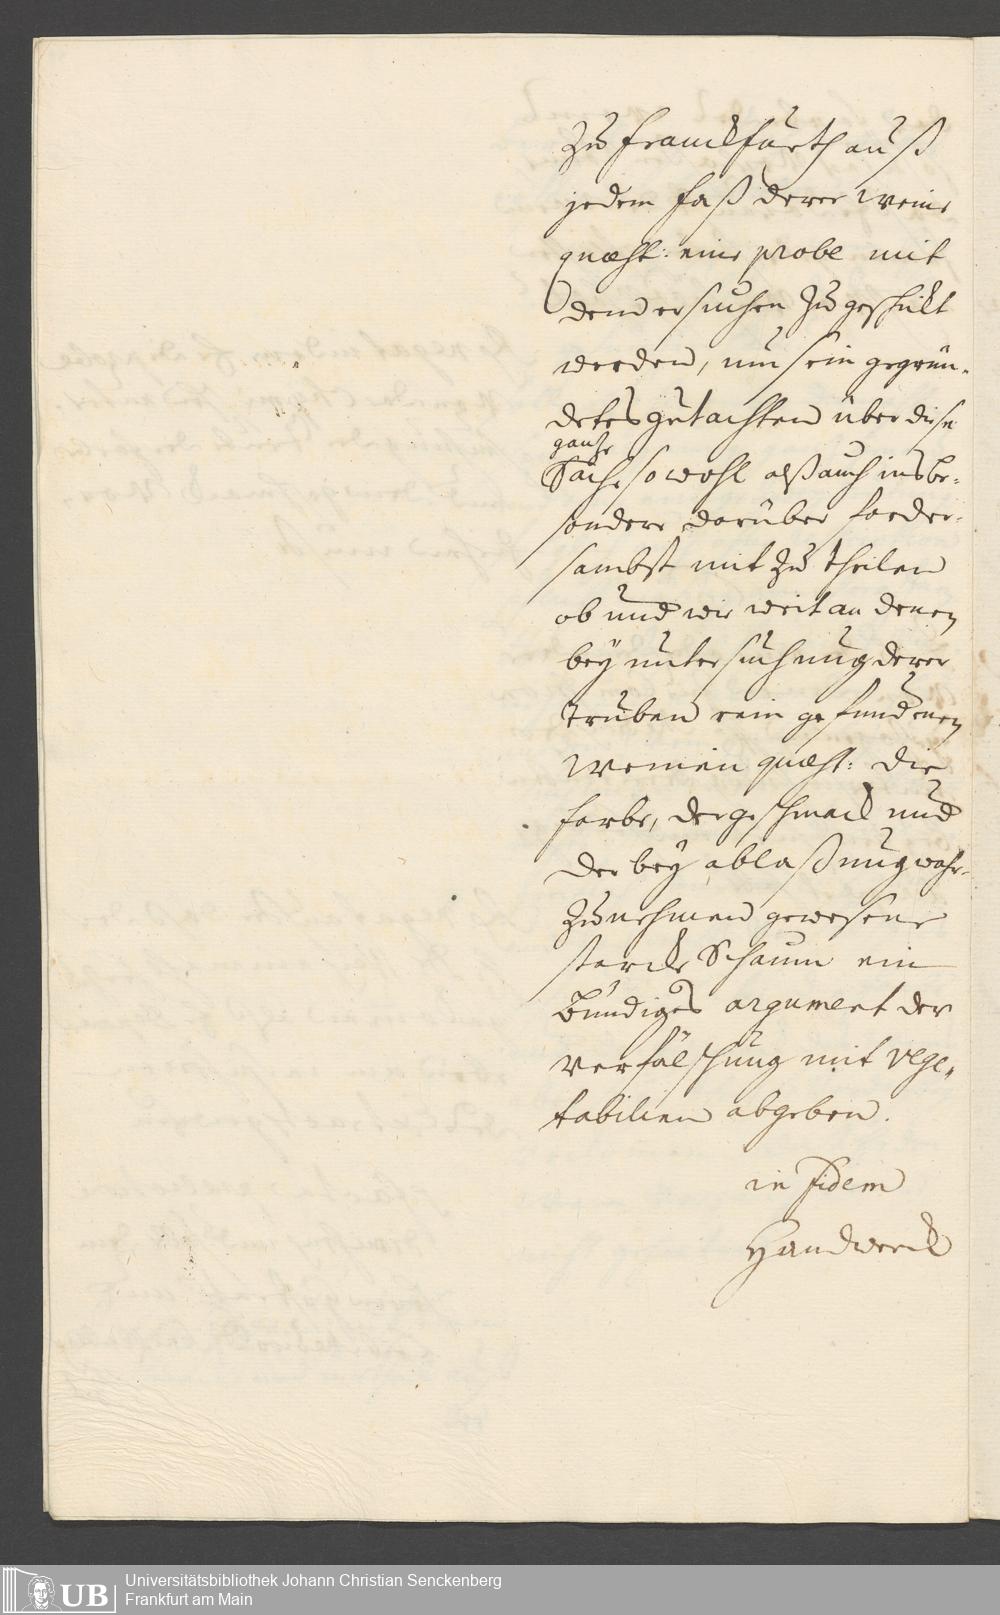 zu Franckfurth auß
jedem Faß derer Weine
quæst: eine probe mit
dem ersuchen zugeschickt
werden, um sein gegrün-
detes gutachten über diese
gantze
Sache sowohl alß auch insbe-
sondere darüber forder-
sambst mit zu theilen
ob und wie weit an denen
bey untersuchung derer
truben rein gefundenen
Weinen quæst: die
farbe, der geschmack und
der bey ablaßung wahr-
zunehmen gewesene
starcke Schaum ein
bündiges argument der
verfälschung mit vege-
tabilien abgeben.
in fidem
Handwerck
UB
Universitätsbibliothek Johann Christian Senckenberg
Frankfurt am Main